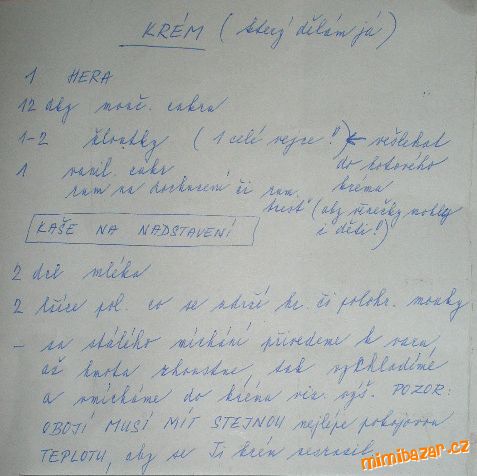 KRÉM (který dělám já)
1 HERA
12 dkg mouč. cukru
1-2 žloutky (1 celé vejce!) ← vešlehat
1 vanil. cukr do hotového
rum na dochucení či rum. krému
trest" (aby věnečky mohly
KAŠE NA NADSTAVENÍ i děti!)
2 dcl mléka
2 lžíce pol. co se udrží hr. či polohr. mouky
- za stálého míchání přivedeme k varu,
až hmota zhoustne, tak vychladíme
a vmícháme do krému viz. výš. POZOR:
OBOJÍ MUSÍ MÍT STEJNOU nejlépe pokojovou
TEPLOTU, aby se Ti krém nesrazil.
mimibazar.cz